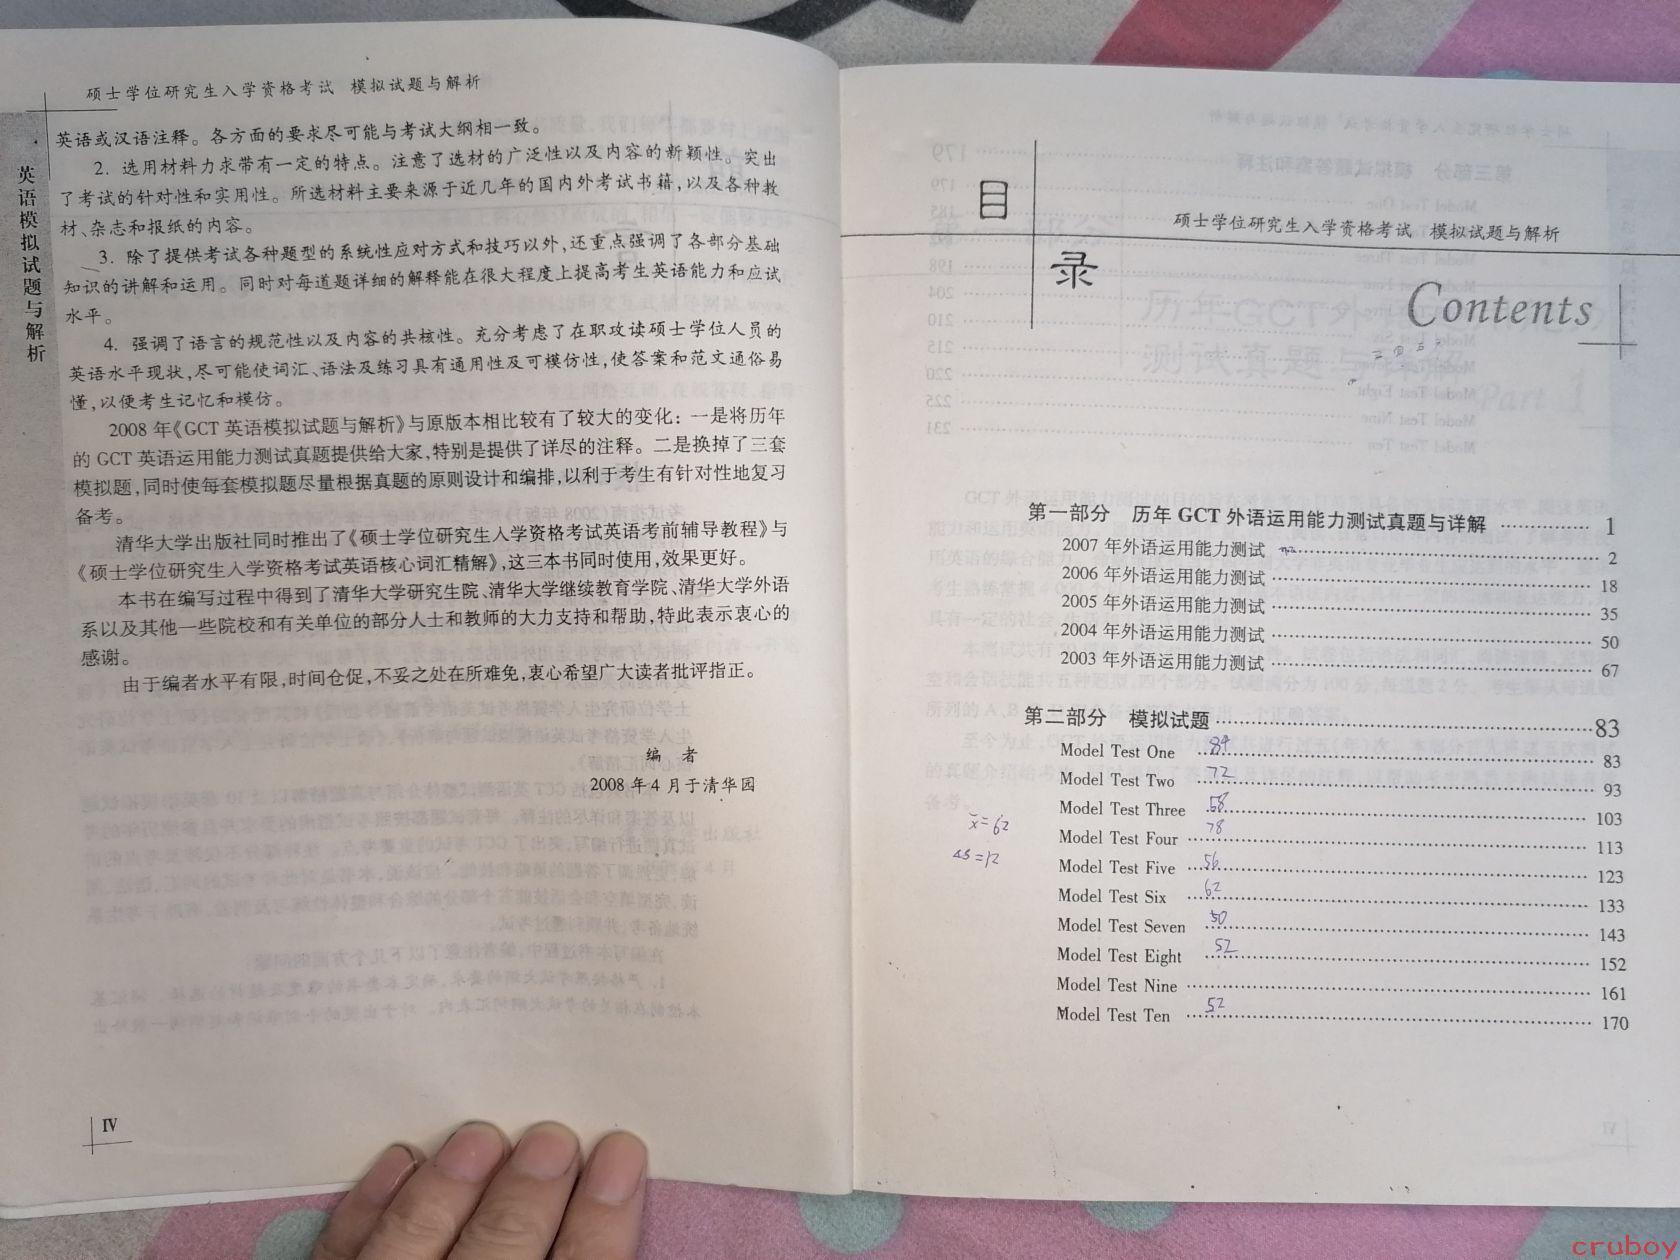 硕士学位研究生入学资格考试 模拟试题与解析
英语模拟试题与解析
英语或汉语注释。各方面的要求尽可能与考试大纲相一致。
2. 选用材料力求带有一定的特点。注意了选材的广泛性以及内容的新颖性。突出
了考试的针对性和实用性。所选材料主要来源于近几年的国内外考试书籍,以及各种教
材、杂志和报纸的内容。
3. 除了提供考试各种题型的系统性应对方式和技巧以外,还重点强调了各部分基础
知识的讲解和运用。同时对每道题详细的解释能在很大程度上提高考生英语能力和应试
水平。
4. 强调了语言的规范性以及内容的共核性。充分考虑了在职攻读硕士学位人员的
英语水平现状,尽可能使词汇、语法及练习具有通用性及可模仿性,使答案和范文通俗易
懂,以便考生记忆和模仿。
2008 年《GCT 英语模拟试题与解析》与原版本相比较有了较大的变化:一是将历年
的 GCT 英语运用能力测试真题提供给大家,特别是提供了详尽的注释。二是换掉了三套
模拟题,同时使每套模拟题尽量根据真题的原则设计和编排,以利于考生有针对性地复习
备考。
清华大学出版社同时推出了《硕士学位研究生入学资格考试英语考前辅导教程》与
《硕士学位研究生入学资格考试英语核心词汇精解》,这三本书同时使用,效果更好。
本书在编写过程中得到了清华大学研究生院、清华大学继续教育学院、清华大学外语
系以及其他一些院校和有关单位的部分人士和教师的大力支持和帮助,特此表示衷心的
感谢。
由于编者水平有限,时间仓促,不妥之处在所难免,衷心希望广大读者批评指正。
编 者
2008 年 4 月于清华园
IV
目录
硕士学位研究生入学资格考试 模拟试题与解析
Contents
第一部分 历年 GCT 外语运用能力测试真题与详解 ……………… 1
2007 年外语运用能力测试 ……………… 2
2006 年外语运用能力测试 ……………… 18
2005 年外语运用能力测试 ……………… 35
2004 年外语运用能力测试 ……………… 50
2003 年外语运用能力测试 ……………… 67
第二部分 模拟试题 ……………… 83
Model Test One 84 ……………… 83
Model Test Two 72 ……………… 93
Model Test Three 58 ……………… 103
Model Test Four 78 ……………… 113
Model Test Five 56 ……………… 123
Model Test Six 62 ……………… 133
Model Test Seven 50 ……………… 143
Model Test Eight 52 ……………… 152
Model Test Nine ……………… 161
Model Test Ten 52 ……………… 170
x̄=62
cruboy